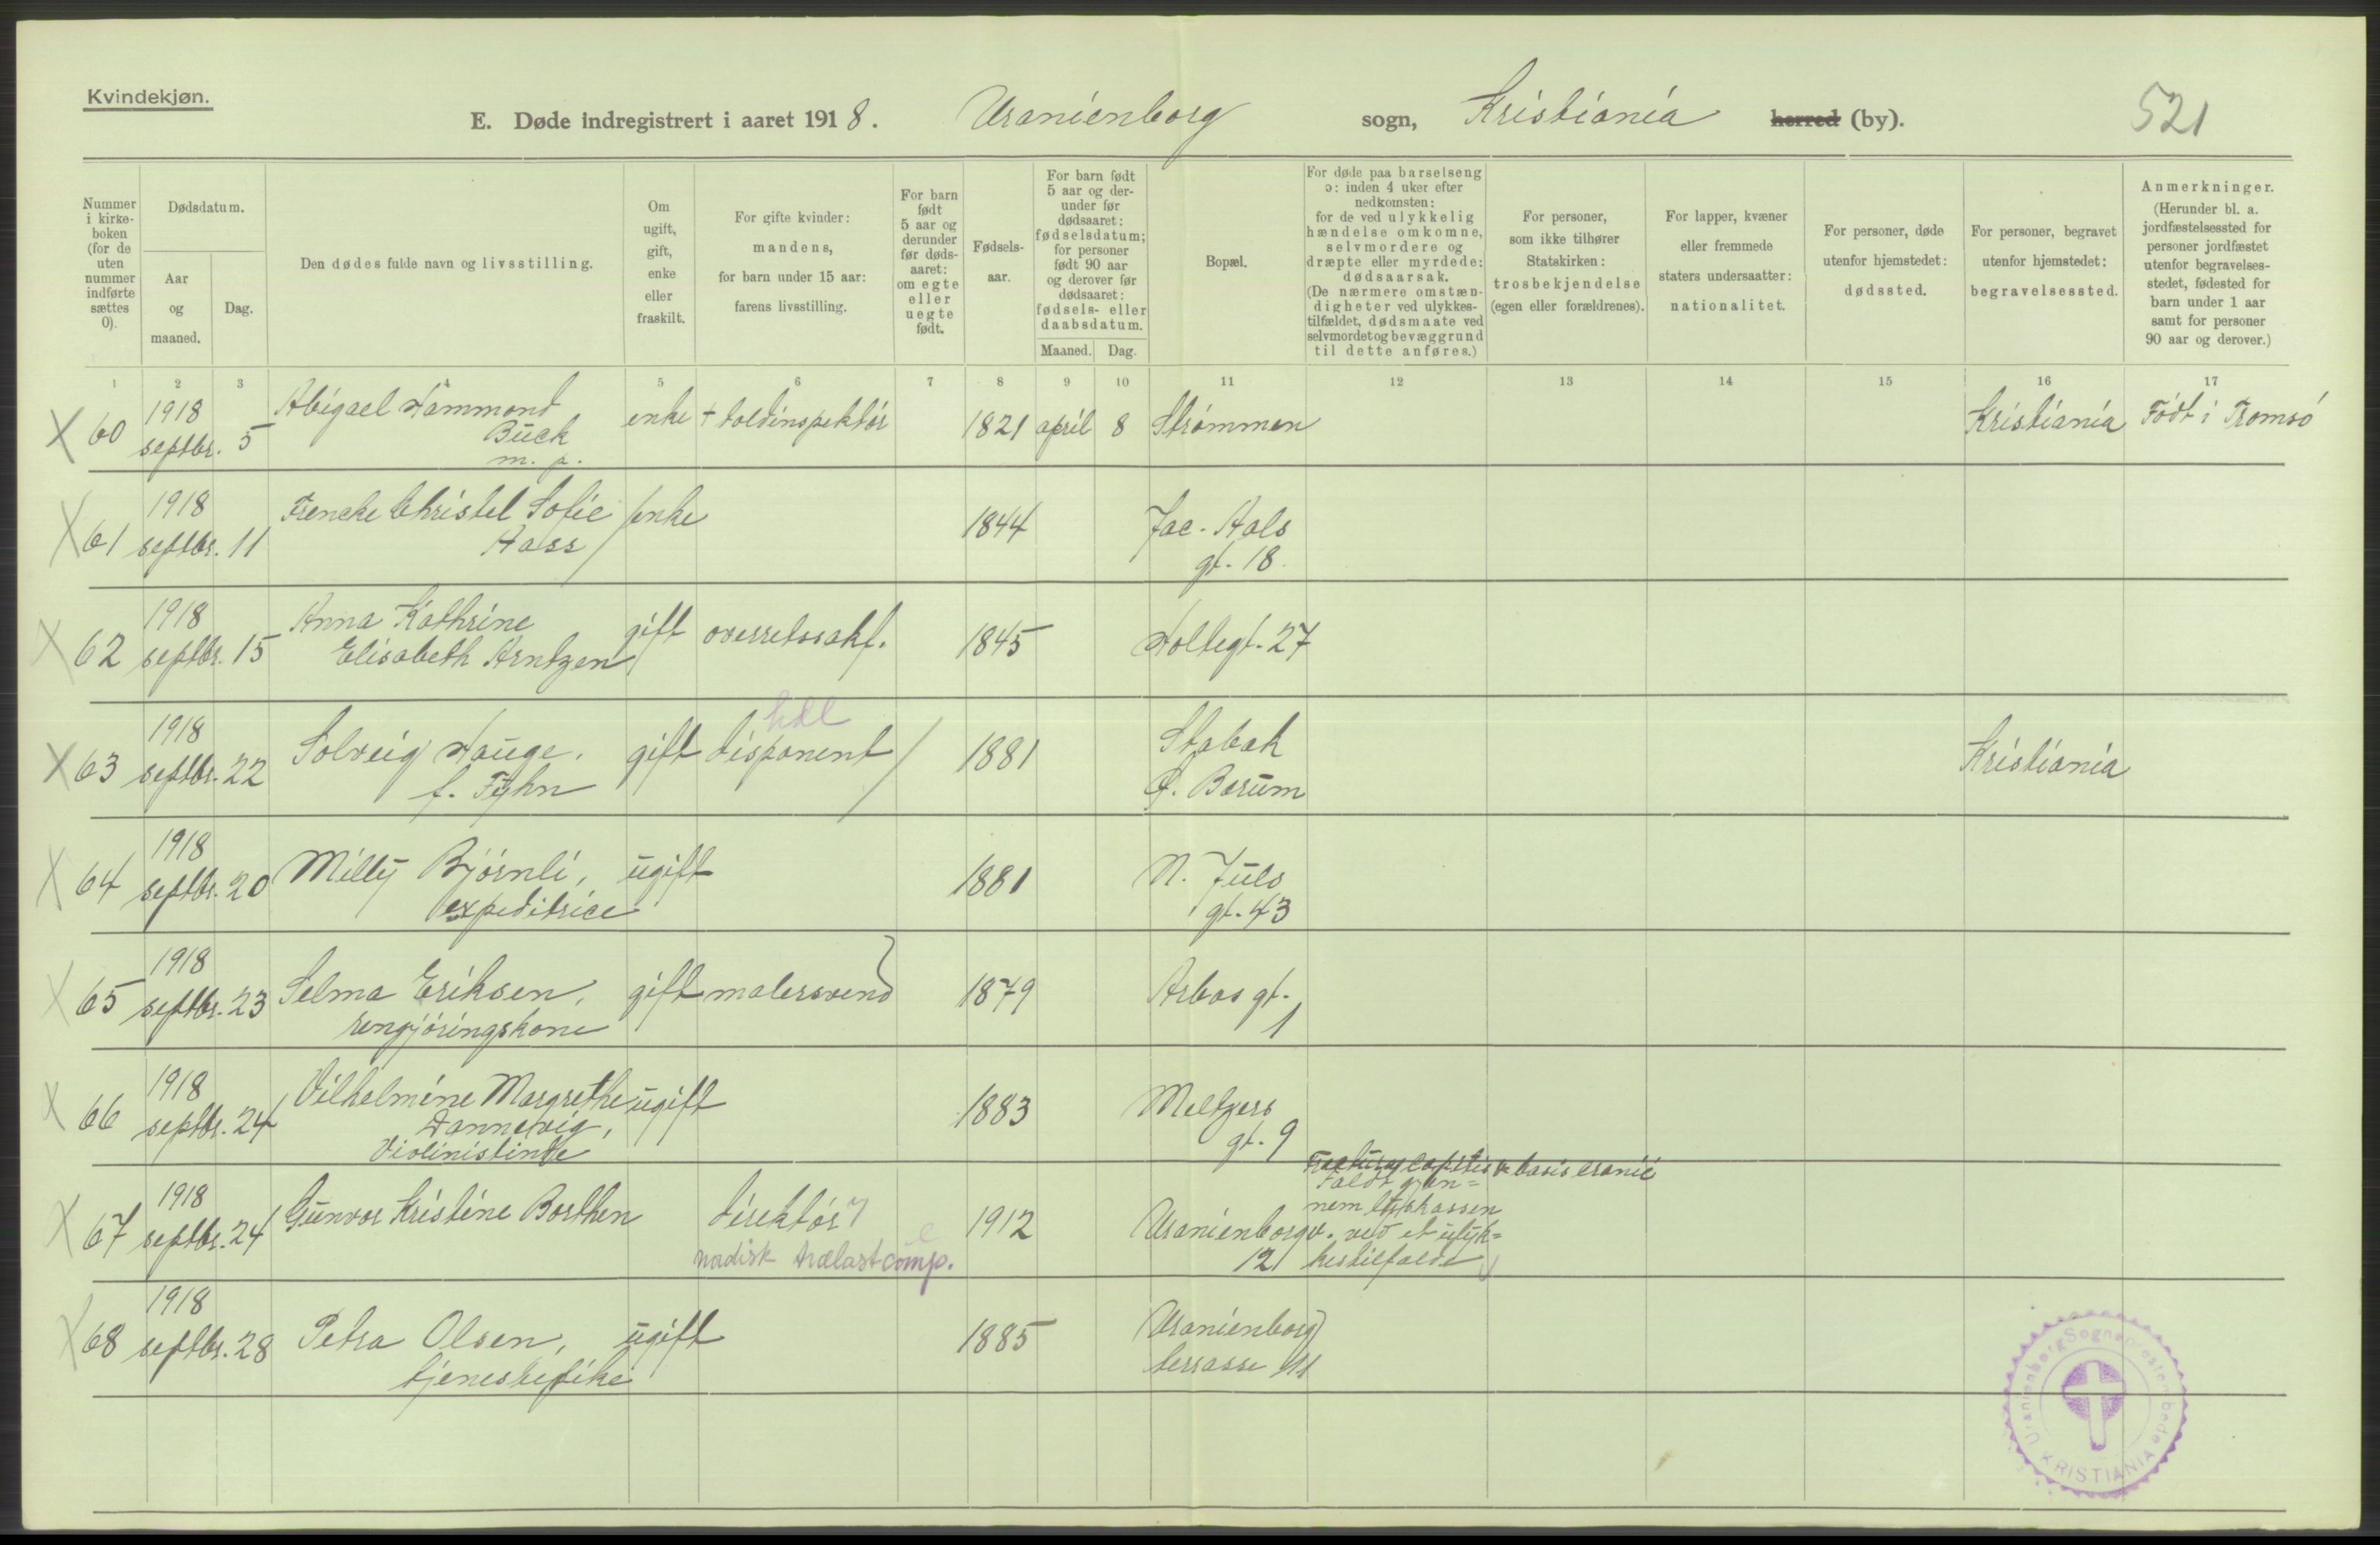 Kvindekjøn.
E. Døde indregistrert i aaret 1918. Uranienborg sogn, Kristiania herred (by). 521
Nummer i kirkeboken (for de uten nummer indførte sættes 0).
Dødsdatum.
Aar og maaned.
Dag.
Den dødes fulde navn og livsstilling.
Om ugift, gift, enke eller fraskilt.
For gifte kvinder: mandens, for barn under 15 aar: farens livsstilling.
For barn født 5 aar og derunder før dødsaaret: om egte eller uegte født.
Fødselsaar.
For barn født 5 aar og derunder før dødsaaret: fødselsdatum; for personer født 90 aar og derover før dødsaaret: fødsels- eller daabsdatum.
Maaned. Dag.
Bopæl.
For døde paa barselseng ɔ: inden 4 uker efter nedkomsten: for de ved ulykkelig hændelse omkomne, selvmordere og dræpte eller myrdede: dødsaarsak. (De nærmere omstændigheter ved ulykkestilfældet, dødsmaate ved selvmordet og bevæggrund til dette anføres.)
For personer, som ikke tilhører Statskirken: trosbekjendelse (egen eller forældrenes).
For lapper, kvæner eller fremmede staters undersaatter: nationalitet.
For personer, døde utenfor hjemstedet: dødssted.
For personer, begravet utenfor hjemstedet: begravelsessted.
Anmerkninger. (Herunder bl. a. jordfæstelsessted for personer jordfæstet utenfor begravelsesstedet, fødested for barn under 1 aar samt for personer 90 aar og derover.)
1 2 3 4 5 6 7 8 9 10 11 12 13 14 15 16 17
X 60 1918 septbr. 5 Abigael Hammond Buck m. p. enke + toldinspektör 1821 april 8 Strömmen Kristiania Födt i Tromsö
X 61 1918 septbr. 11 Frencke Christel Sofie Hass enke 1844 Jac. Aals gt. 18
X 62 1918 septbr. 15 Anna Kathrine Elisabeth Arntzen gift overretssakf. 1845 Holtegt. 27
X 63 1918 septbr. 22 Solveig Hauge, f. Fyhn gift hdl disponent 1881 Stabæk Ø. Bærum Kristiania
X 64 1918 septbr. 20 Milly Björnli, expeditrice ugift 1881 N. Juls gt. 43
X 65 1918 septbr. 23 Selma Eriksen, rengjöringskone gift malersvend 1879 Arbos gt. 1
X 66 1918 septbr. 24 Vilhelmine Margrethe Dannevig, Violinistinde ugift 1883 Meltzers gt. 9
X 67 1918 septbr. 24 Gunvor Kristine Borthen direktör nordisk trælastcomp. 1912 Uranienborgv. 12 Fractura capitis & basis cranii Faldt gjennem ved et ulykkestilfælde
X 68 1918 septbr. 28 Petra Olsen, tjenestepike ugift 1885 Uranienborg terrasse 11
Uranienborg Sogneprestembede
KRISTIANIA